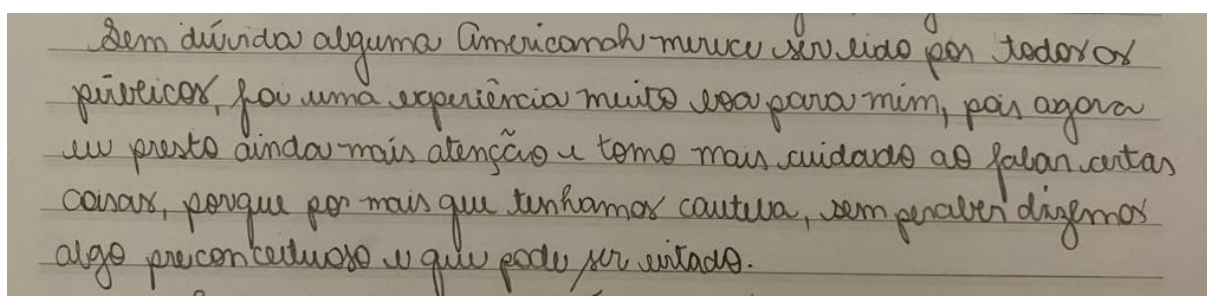 Sem dúvida alguma Americanah merece ser lido por todos os
públicos, foi uma experiência muito boa para mim, pois agora
eu presto ainda mais atenção e tomo mais cuidado ao falar certas
coisas, porque por mais que tenhamos cautela, sem perceber dizemos
algo preconceituoso e que pode ser evitado.